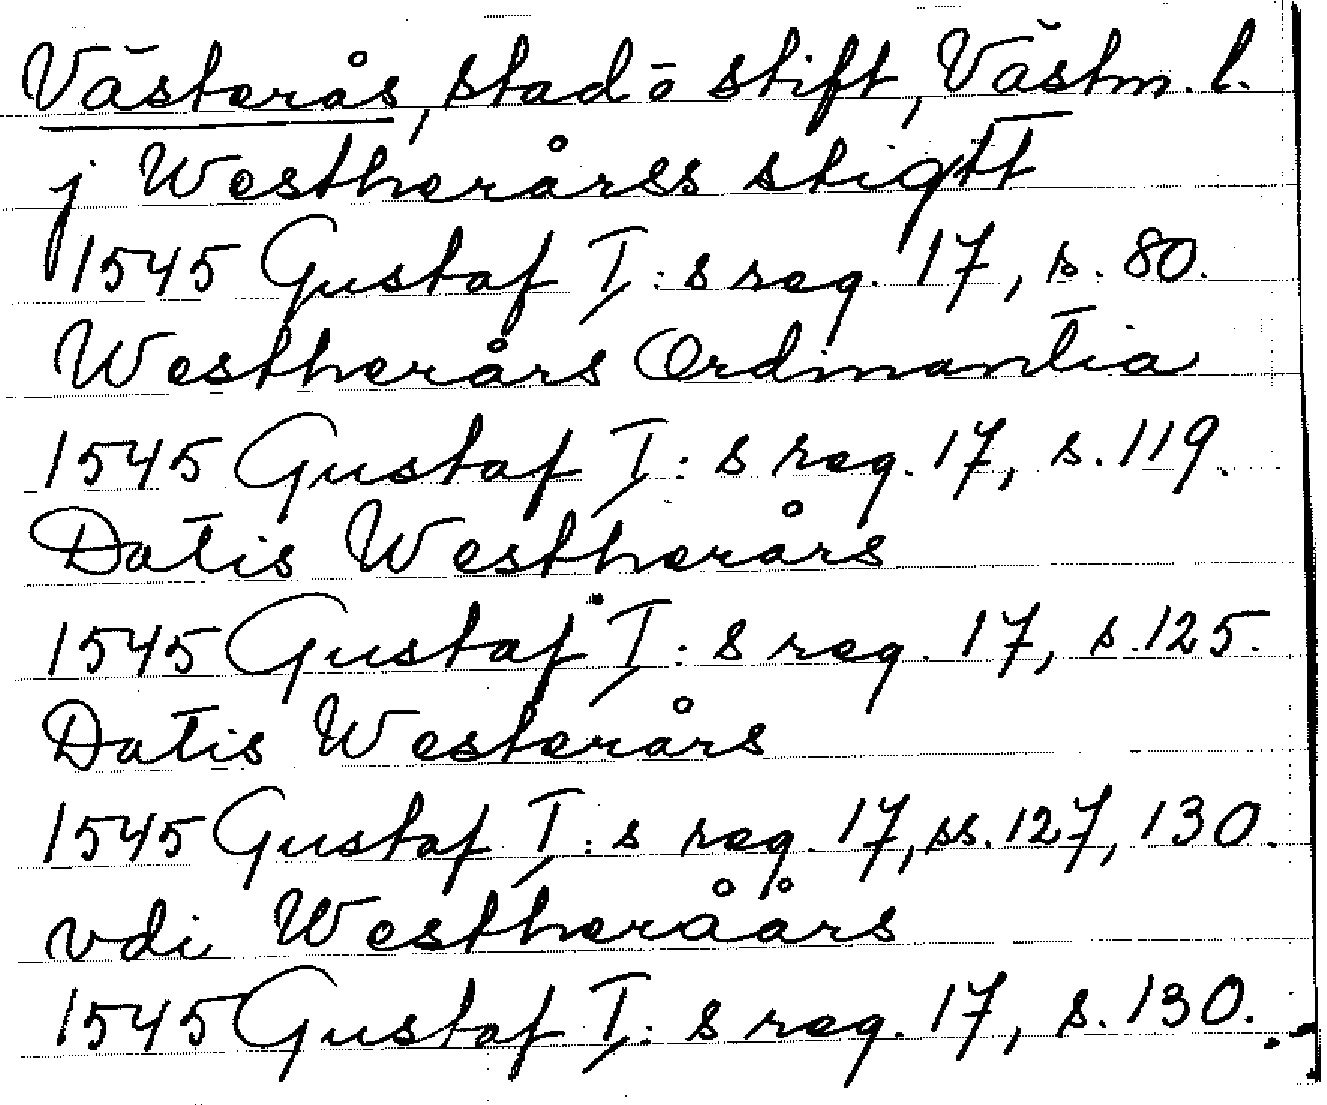 Västerås, stad o stift, Västm. l.
j Westherårss stigtt
1545 Gustaf I:s reg. 17, s. 80.
Westherårs Ordinantia
1545 Gustaf I:s reg. 17, s. 119.
Datis Westherårs
1545 Gustaf I:s reg. 17, s. 125.
Datis Westerårs
1545 Gustaf I:s reg. 17, ss. 127, 130.
vdi Westheråårs
1545 Gustaf I:s reg. 17, s. 130.